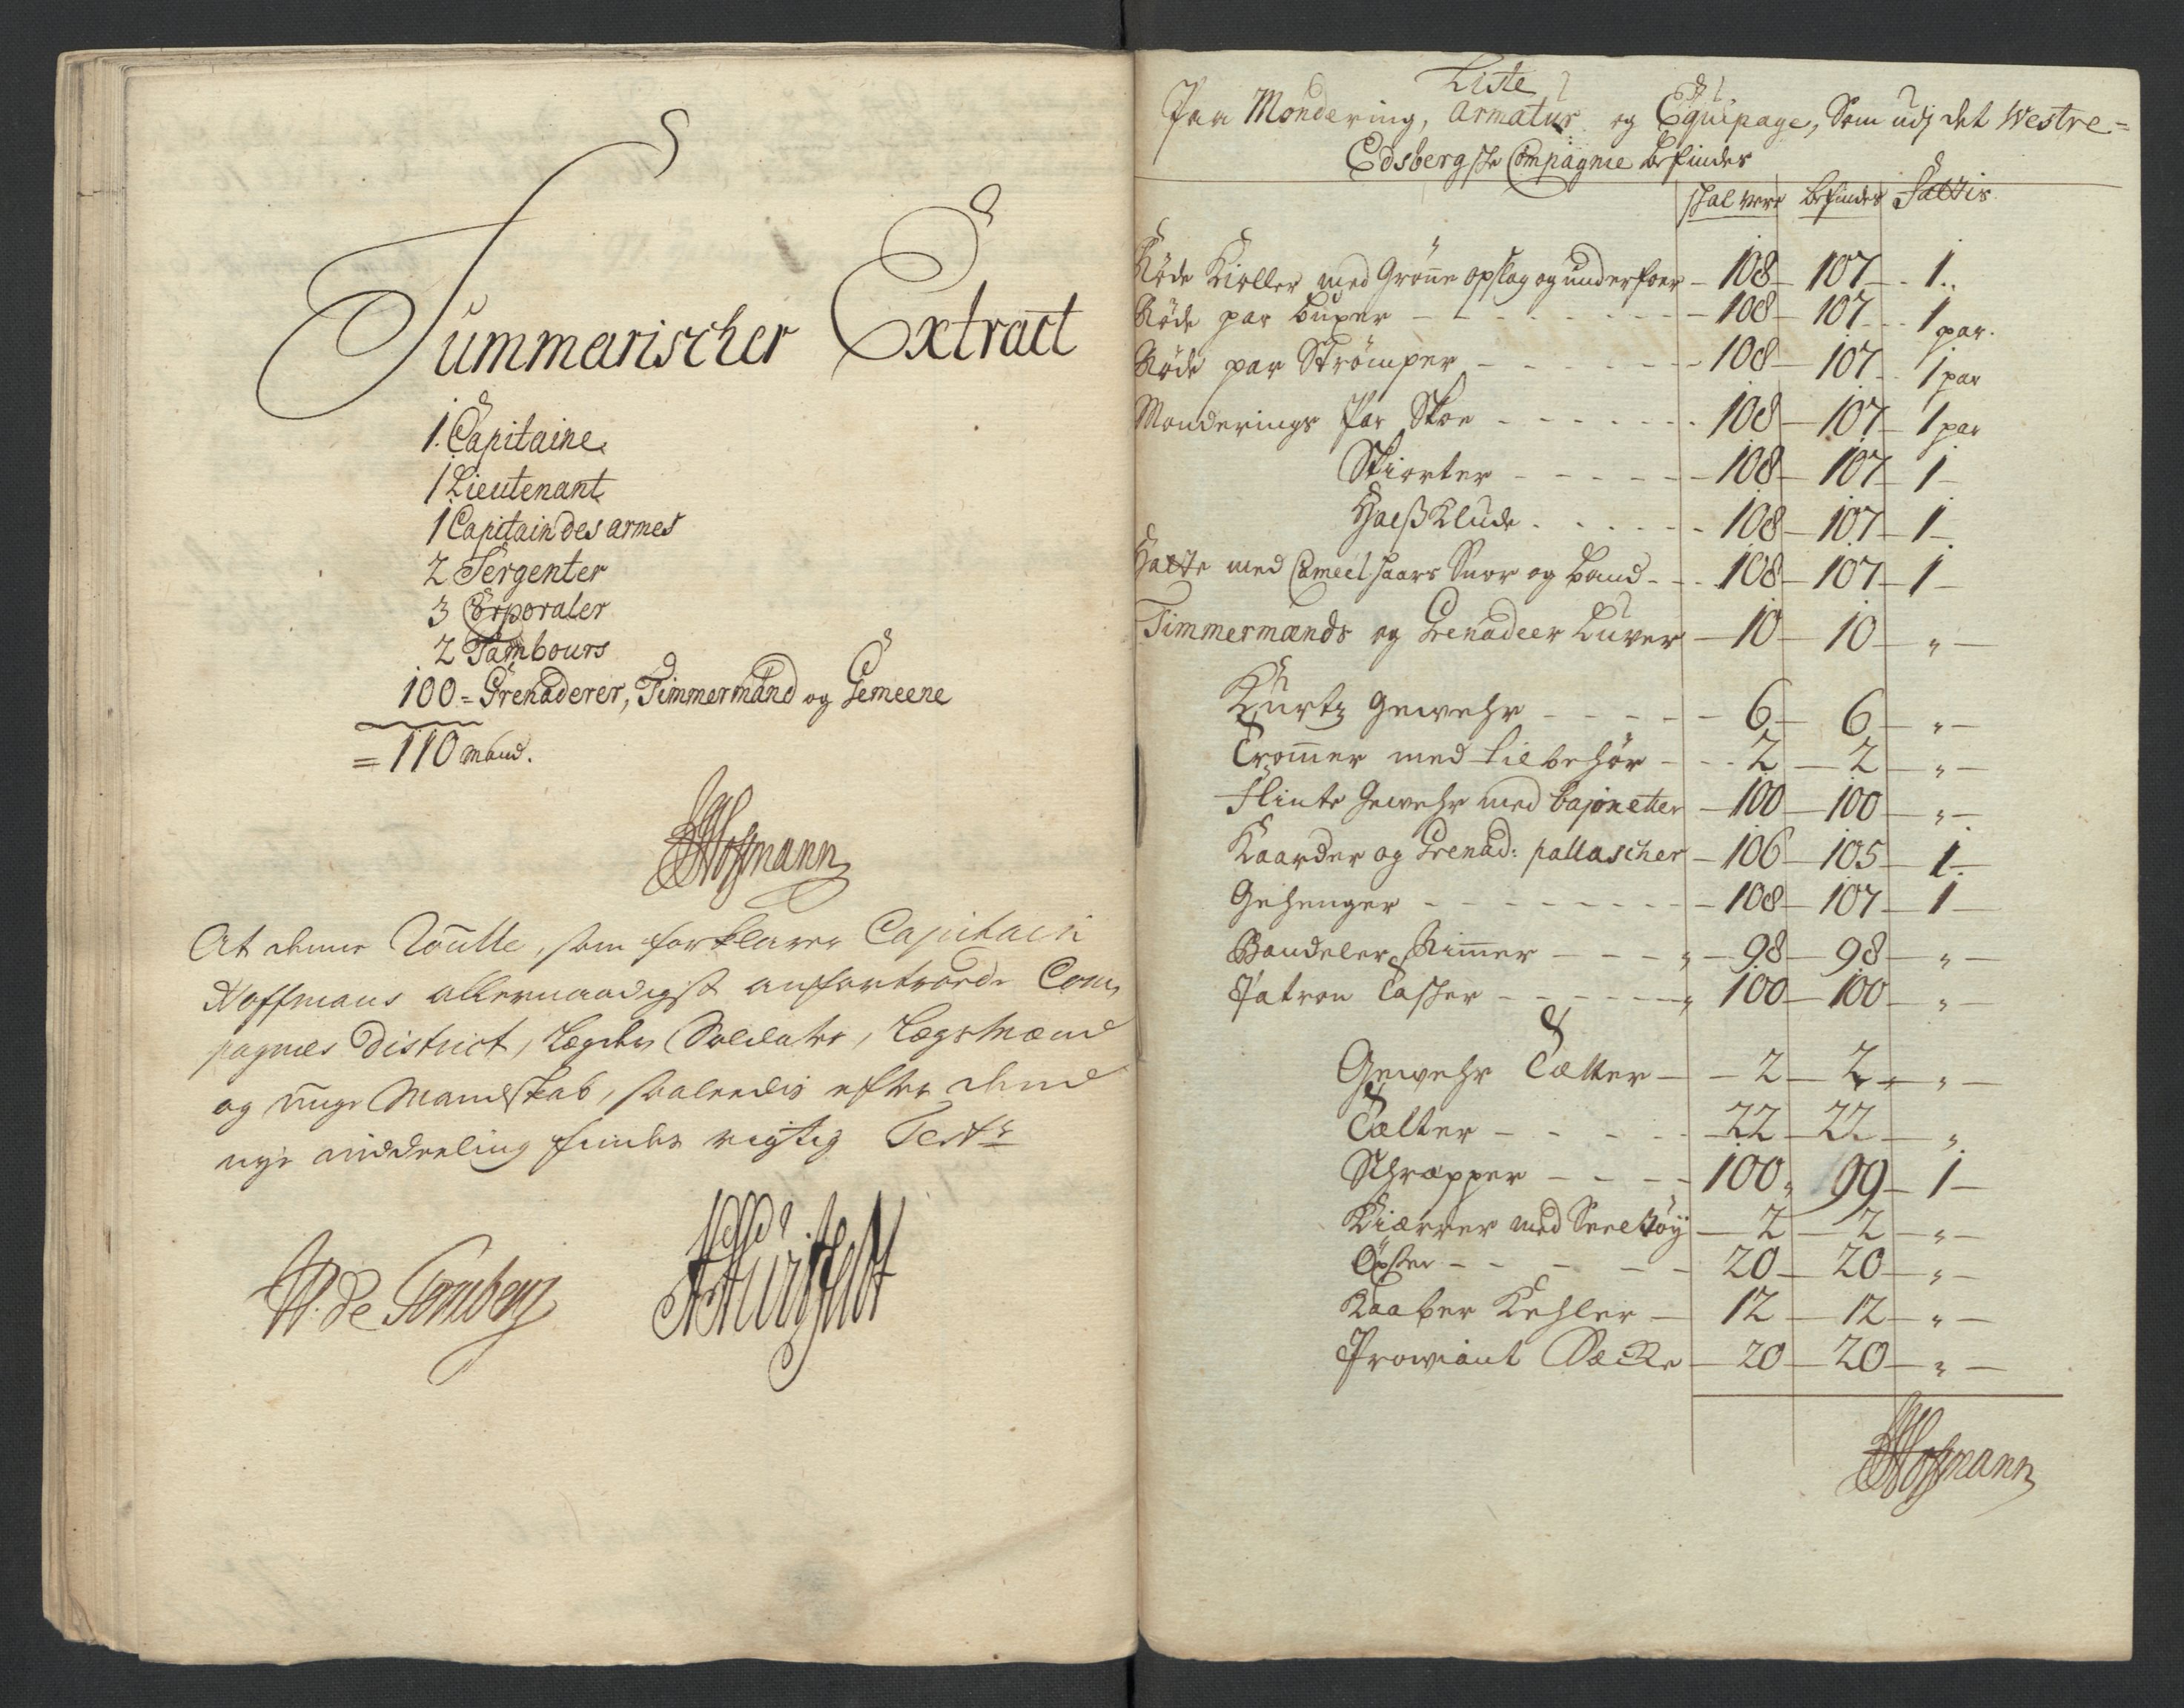 Summarischer Extract
1. Capitaine
1 Lieutenant
1 Capitain des armes
2 Sergenter
3 Corporaler
2 Tambours
100 = Grenaderer, Timmermænd og Gemeene
= 110 mand.
Hoffmann
At denne Roulle, som forklarer Capitain
Hoffmans allernaadigst anfortroede Com,
pagnies District, Lægder, Soldater, Lægsmænd
og unge Mandskab, saaledis efter dend
nye inddeeling findes rigtig Test:
Liste
Paa Mondering, Armatur og Equipage, Som udj det Westre =
Edsbergske Compagnie befindes
skal være befindes Fattis
Røde Kioller med Grønne opslag og underfoer - 108 - 107 - 1..
Røde par buxer - 108 - 107 - 1 par.
Røde par Strømper - 108 - 107 - 1 par
Monderings Par Skoe - 108 - 107 - 1 par
Skiorter - 108 - 107 - 1 -
HalsKlude - 108 - 107 - 1 -
Hatte med Cameelhaars Snor og Baand - 108 - 107 - 1 -
Timmermands og Grenadeer Luver - 10 - 10 - " -
Kurtz Gewehr - 6 - 6 - " -
Trommer med tilbehør - 2 - 2 - " -
Flinte Gewehr med bajonetter - 100 - 100 - " -
Kaarder og Grenad: pallascher - 106 - 105 - 1 -
Gehenger - 108 - 107 - 1 -
Bandeler Rimmer - 98 - 98 - " -
Patron Tasker - 100 - 100 - " -
Gewehr Tælter - 2 - 2 - " -
Tælter - 22 - 22 - "
Schrapper - 100 " 99 - 1 -
Kiærrer med Seeletøy - 2 - 2 - " -
Øxser - 20 - 20 - " -
Kaaber Kehler - 12 - 12 - " -
Prowiant Sæcke - 20 - 20 - " -
Hoffmann